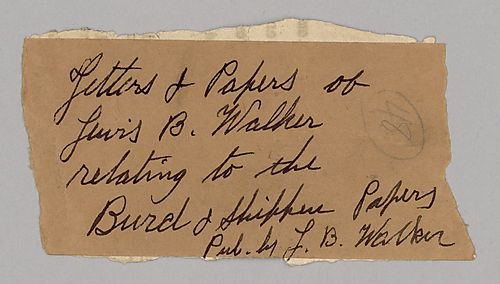 Letters & Papers of
Lewis B. Walker
relating to the
Burd & Shippen Papers
Pub. by L. B. Walker